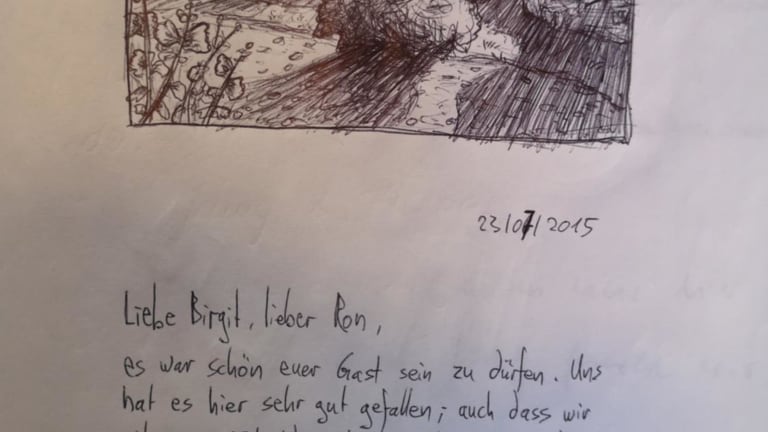 23/07/2015
Liebe Birgit, lieber Ron,
es war schön euer Gast sein zu dürfen. Uns
hat es hier sehr gut gefallen; auch dass wir